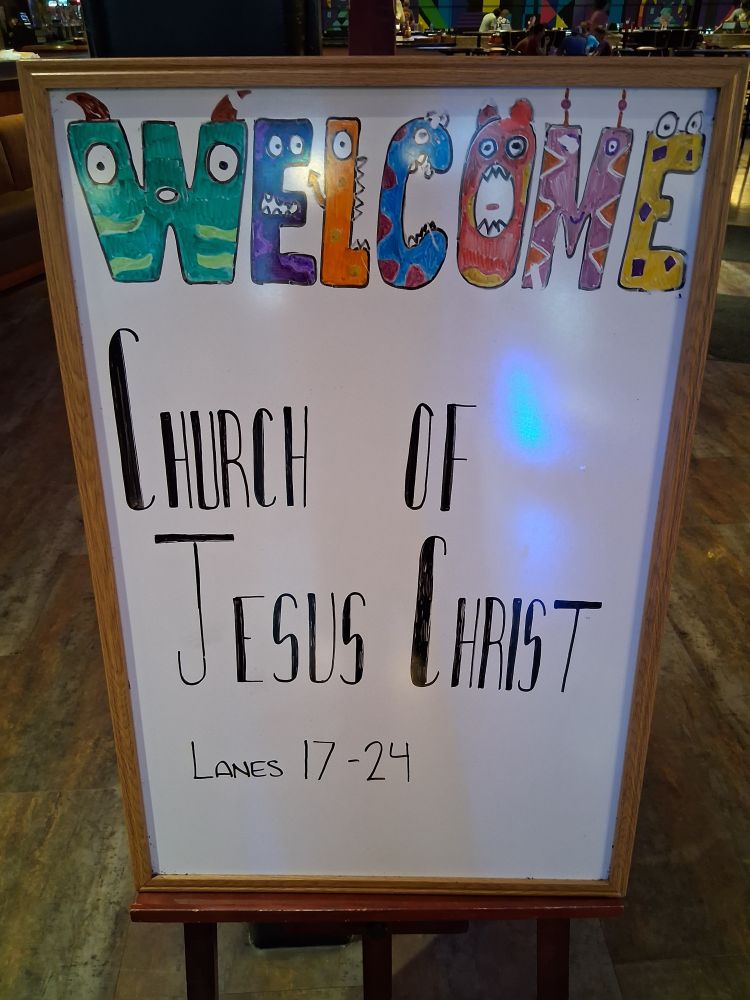 WELCOME
CHURCH OF
JESUS CHRIST
LANES 17-24